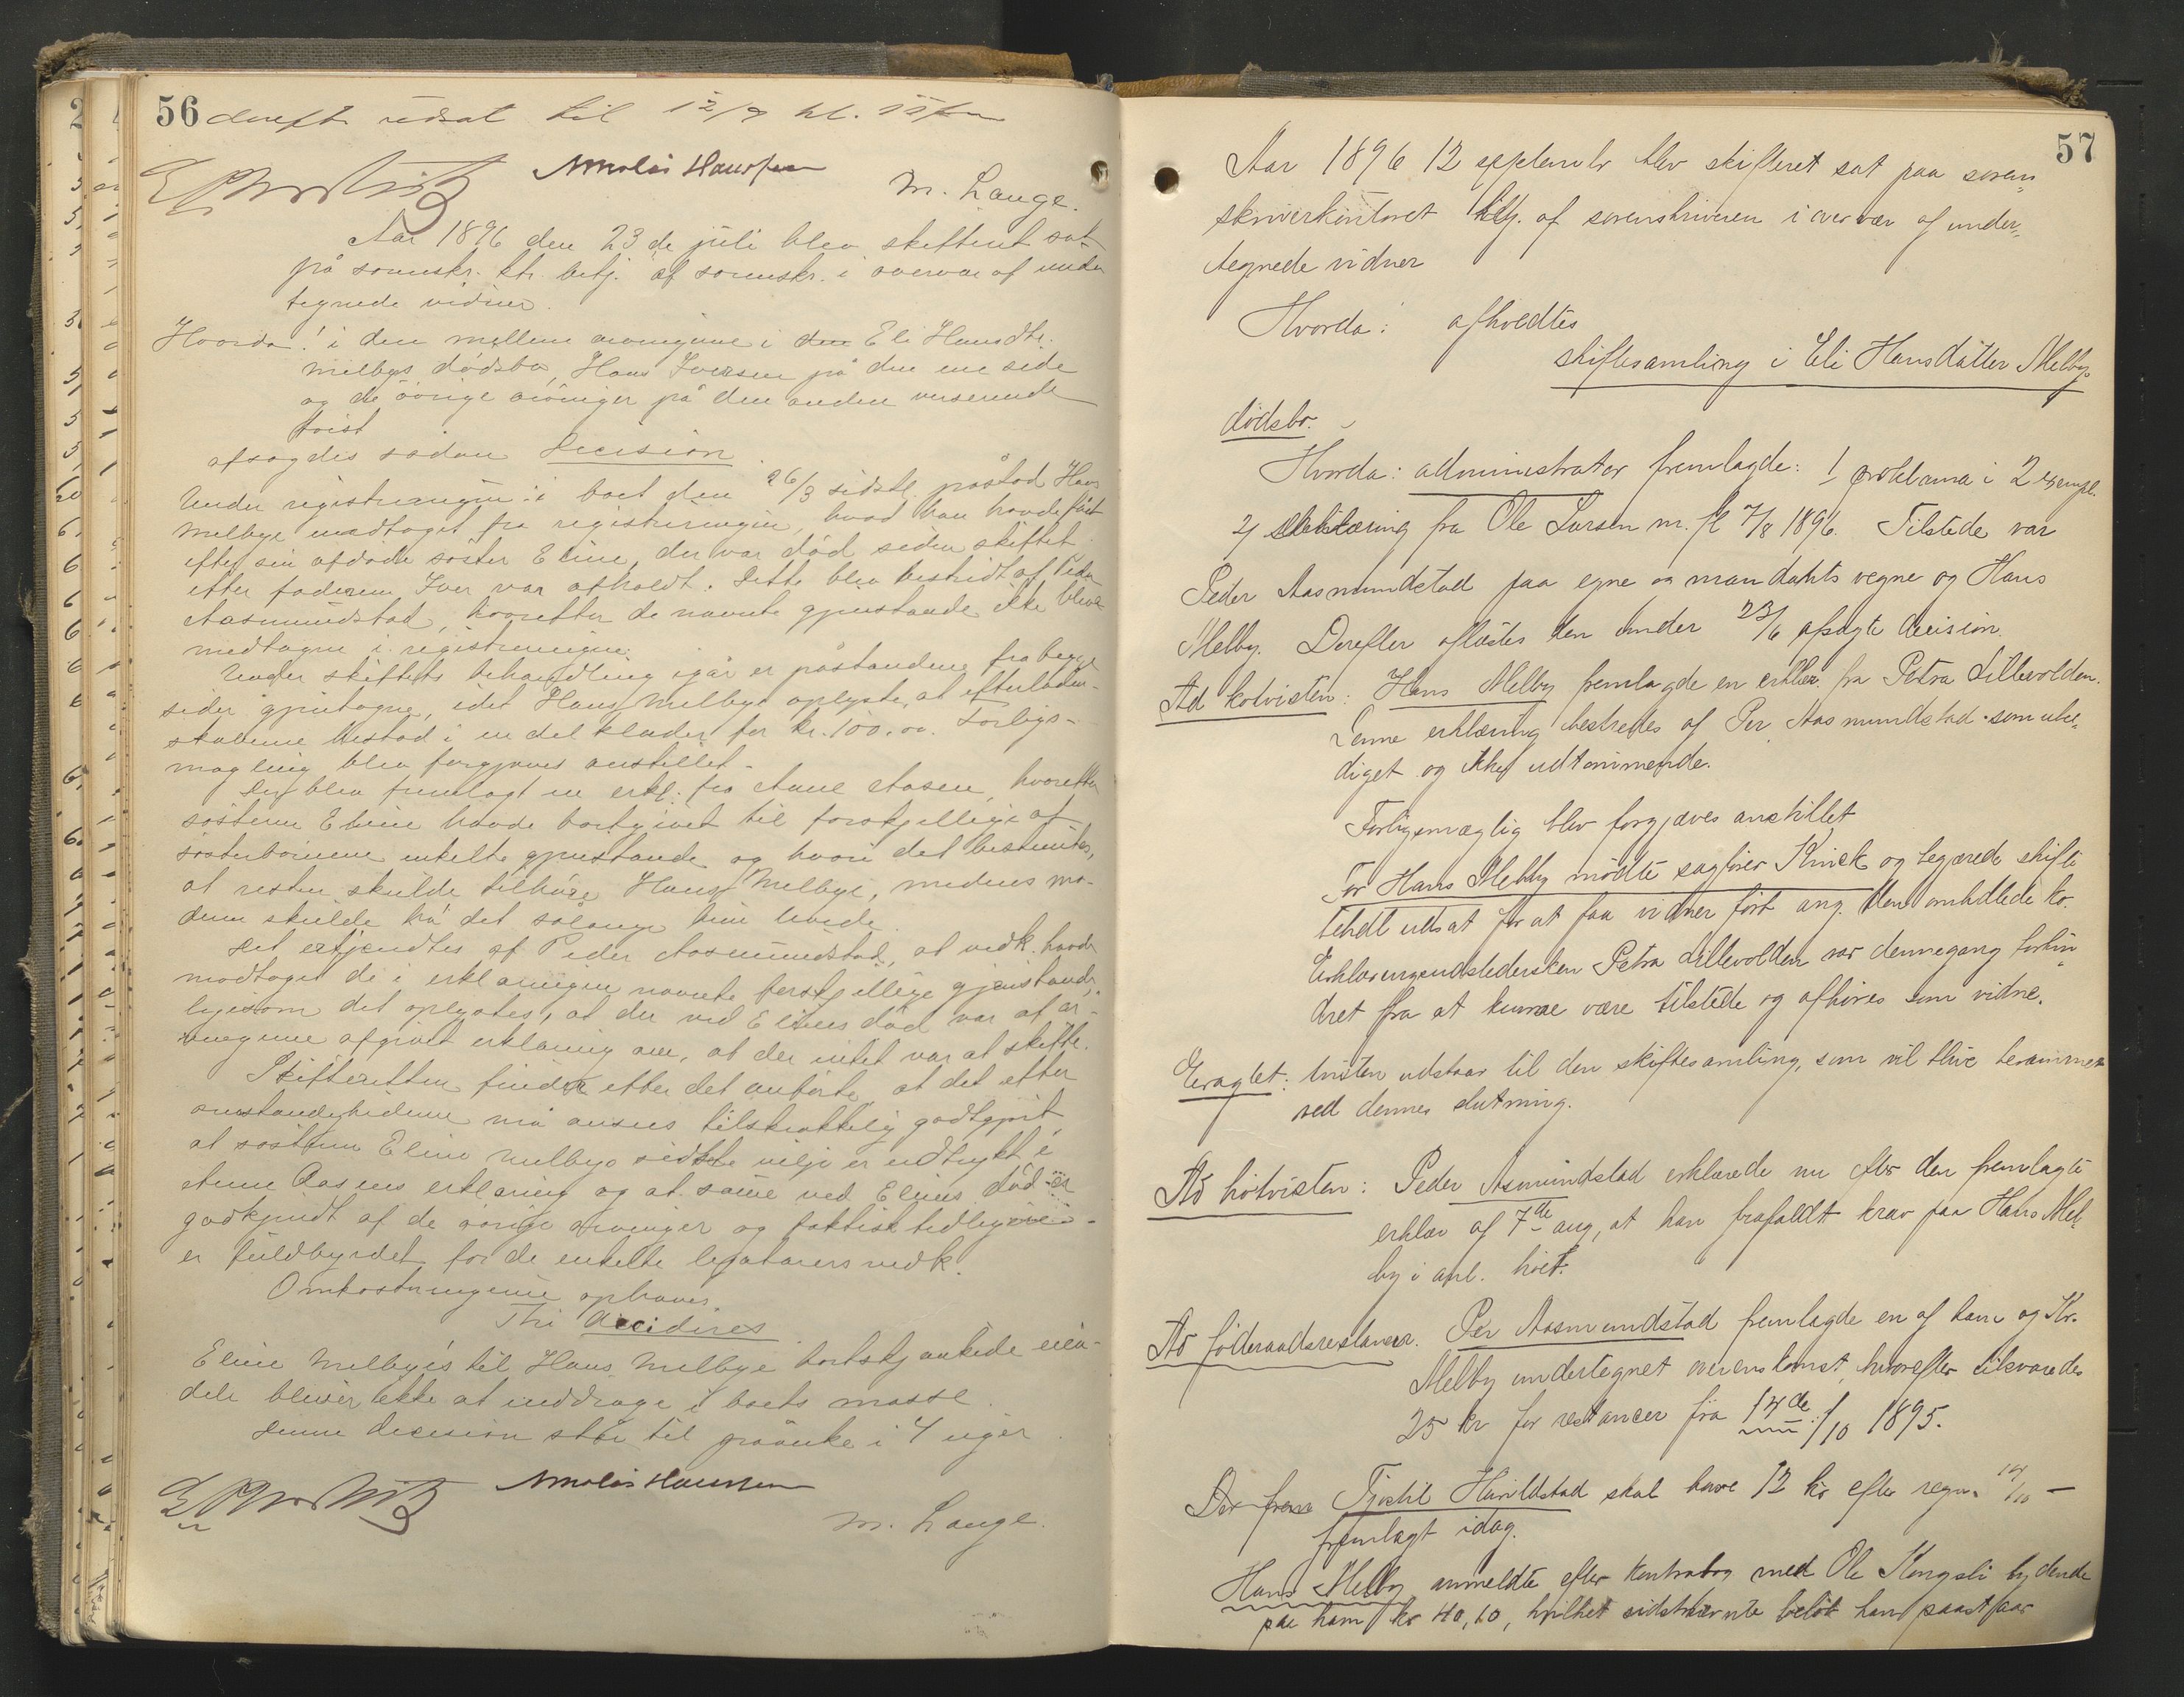 56 dereft. udsat til 12/9 kl. 11 fm
Nikolai Haussen
M. Lange.
Aar 1896 den 23de juli blev skifteret sat
på sorenskr. ktr. betj. af sorenskr. i overvær af under
tegnede vidner.
Hvorda! i den mellem arvingerne i den Eli Hansdtr.
Melbys dødsbo, Hans Iversen på den ene side
og de øvrige arvinger på den anden verserende
tvist
afsagdes sådan Decision.
Under registreringen i boet den 26/3 sidstl. påstod Hans
Melbye undtaget fra registreringen, hvad han havde fået
efter sin afdøde søster Eline, der var død siden skiftet
efter faderen Iver var afholdt. Dette blev bestridt af Peder
Aasmundstad, hvorefter de nævnte gjenstande ikke blev
medtagne i registreringen.
Under skiftets behandling igår er påstandene fra begge
sider gjentagne, idet Hans Melbye oplyste, at efterladen-
skaberne bestod i en del klæder for kr. 100.00. Forligs-
mægling blev forgjæves anstillet.
Der blev fremlagt en erkl. fra Anne Aasen, hvorefter
søsteren Eline havde bortgivet til forskjellige af
søsterbørnene enkelte gjenstande og hvori det bestemtes,
at resten skulde tilhøre Hans Melbye, medens mo-
deren skulde ha' det sålænge hun levede.
Det erkjendtes af Peder Aasmundstad, at vedk. havde
modtaget de i erklæringen nævnte forskjellige gjenstande,
ligesom det oplystes, at der ved Elines død var af ar-
vingerne afgivet erklæring om, at der intet var at skifte.
Skifteretten finder efter det anførte, at det efter
omstændighederne må ansees tilstrækkelig godtgjort,
at søsteren Eline Melbys sidste vilje er udtrykt i
Anne Aasens erklæring og at samme ved Elines død er
godkjendt af de øvrige arvinger og faktisk tidligere
er fuldbyrdet for de enkelte legatarers vedk.
Omkostningerne ophæves.
Thi decideres.
Eline Melbye's til Hans Melbye bortskjænkede eien-
dele bliver ikke at inddrage i boets masse.
Denne decision står til påanke i 4 uger.
Nikolai Haussen
M. Lange.
57
Aar 1896 12 september blev skifteret sat paa soren-
skriverkontoret btj. af sorenskriveren i overvær af under-
tegnede vidner
Hvorda: afholdtes
skiftesamling i Eli Hansdatter Melbys
dødsbo.
Hvorda: administrator fremlagde: 1 proklama i 2 exempl.
2/ erklæring fra Ole Larsen m. fl 7/8 1896. Tilstede var
Peder Aasmundstad paa egne og mandants vegne og Hans
Melby. Derefter oplæstes den under 23/6 afsagte decision.
Ad kotvisten: Hans Melby fremlagde en erklær. fra Petra Lillevolden.
Denne erklæring bestredes af Per Aasmundstad som ube-
diget og ikke udtømmende.
Forligsmægling blev forgjæves anstillet
For Hans Melby mødte sagfører Kinck og begjærede skifte
behdl udsat for at faa vidner ført ang. den omhdlede ko.
Erklæringsudstedersken Petra Lillevolden var dennegang forhin-
dret fra at kunne være tilstede og afhøres som vidne.
Eragtet: tvisten udstaar til den skiftesamling, som vil blive berammet
ved dennes slutning.
Ad høtvisten: Peder Asmundstad erklærede nu efter den fremlagte
erklær af 7de aug, at han frafaldt krav paa Hans Mel-
by i anl. høet.
Ad føderaadsrestancer. Per Aasmundstad fremlagde en af ham og Kr.
Melby undertegnet overenskomst, hvorefter tilsvaredes
25 kr for restancer fra 14de/10 1895.
Der frem Tjøstil Harildstad skal have 12 kr efter regn. 14/10 –
fremlagt idag.
Hans Melby anmeldte efter kontrabog med Ole Kongsli lydende
paa ham kr 40,10, hvilket sidstnævnte beløb han paastaar